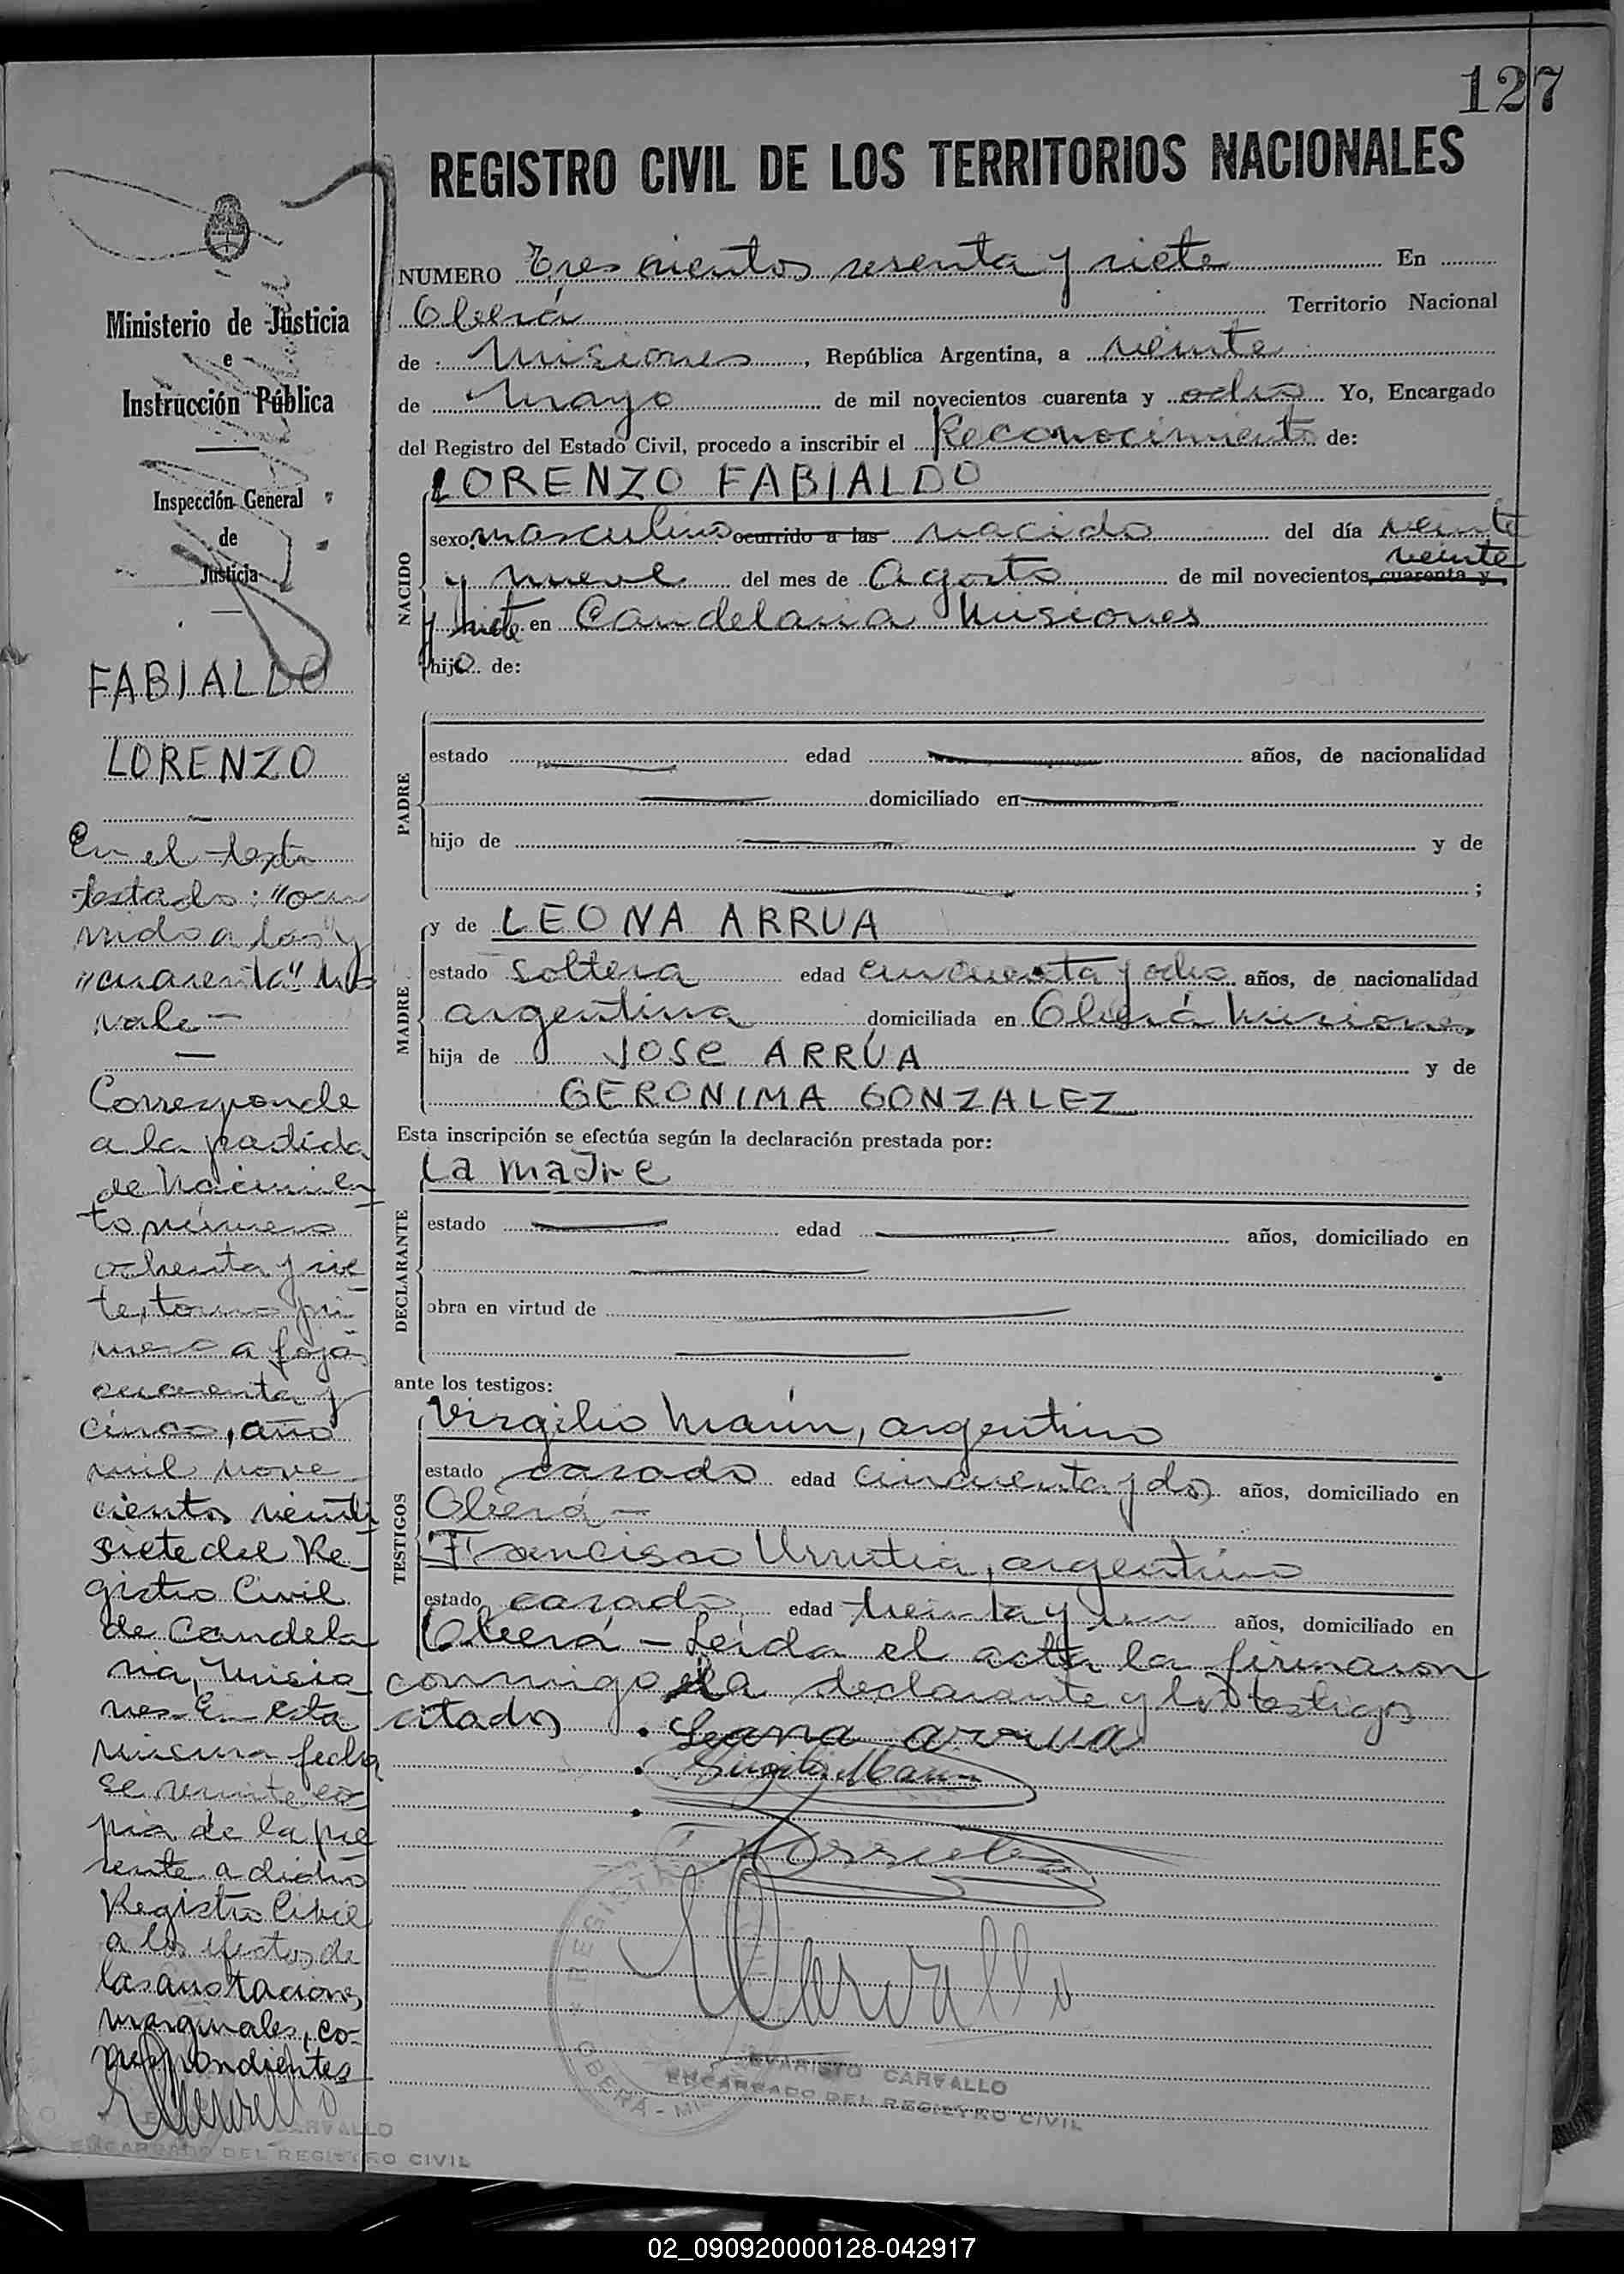 127
REGISTRO CIVIL DE LOS TERRITORIOS NACIONALES
Ministerio de Justicia
e
Instrucción Pública
Inspección General
de
Justicia
FABIALDO
LORENZO
En el texto
testado: "ocu
rrido a las" y
"cuarenta" no
vale -
Corresponde
a la partida
de Nacimien
to número
ochenta y sie
te, tomo pri
mero a fojas
cuarenta y
cinco, año
mil nove
cientos veinti
siete del Re
gistro Civil
de Candela
ria, Misio
nes. En esta
misma fecha
se remite co
pia de la pre
sente a dicho
Registro Civil
a los efectos de
las anotaciones
marginales, co-
rrespondientes
NUMERO Tres cientos sesenta y siete En
Oberá Territorio Nacional
de Misiones, República Argentina, a veinte
de Mayo de mil novecientos cuarenta y ocho Yo, Encargado
del Registro del Estado Civil, procedo a inscribir el Reconocimiento de:
LORENZO FABIALDO
NACIDO
sexo masculino ocurrido a las nacido del día veinte
y nueve del mes de Agosto de mil novecientos, cuarenta y veinte
y siete en Candelaria Misiones
hijo de:
PADRE
estado edad años, de nacionalidad
domiciliado en
hijo de y de
;
MADRE
y de LEONA ARRUA
estado soltera edad cincuenta y ocho años, de nacionalidad
argentina domiciliada en Oberá Misiones
hija de JOSE ARRUA y de
GERONIMA GONZALEZ
Esta inscripción se efectúa según la declaración prestada por:
La madre
DECLARANTE
estado edad años, domiciliado en
obra en virtud de
ante los testigos:
TESTIGOS
Virgilio Marin, argentino
estado casado edad cincuenta y dos años, domiciliado en
Oberá -
Francisco Urrutia, argentino
estado casado edad treinta y un años, domiciliado en
Oberá - Leída el acta la firmaron
conmigo la declarante y los testigos
citados
Leona arrua
Virgilio Marin
Carvallo
REGISTRO CIVIL
OBERÁ - MISIONES
EVARISTO CARVALLO
ENCARGADO DEL REGISTRO CIVIL
CARVALLO
ENCARGADO DEL REGISTRO CIVIL
02_090920000128-042917